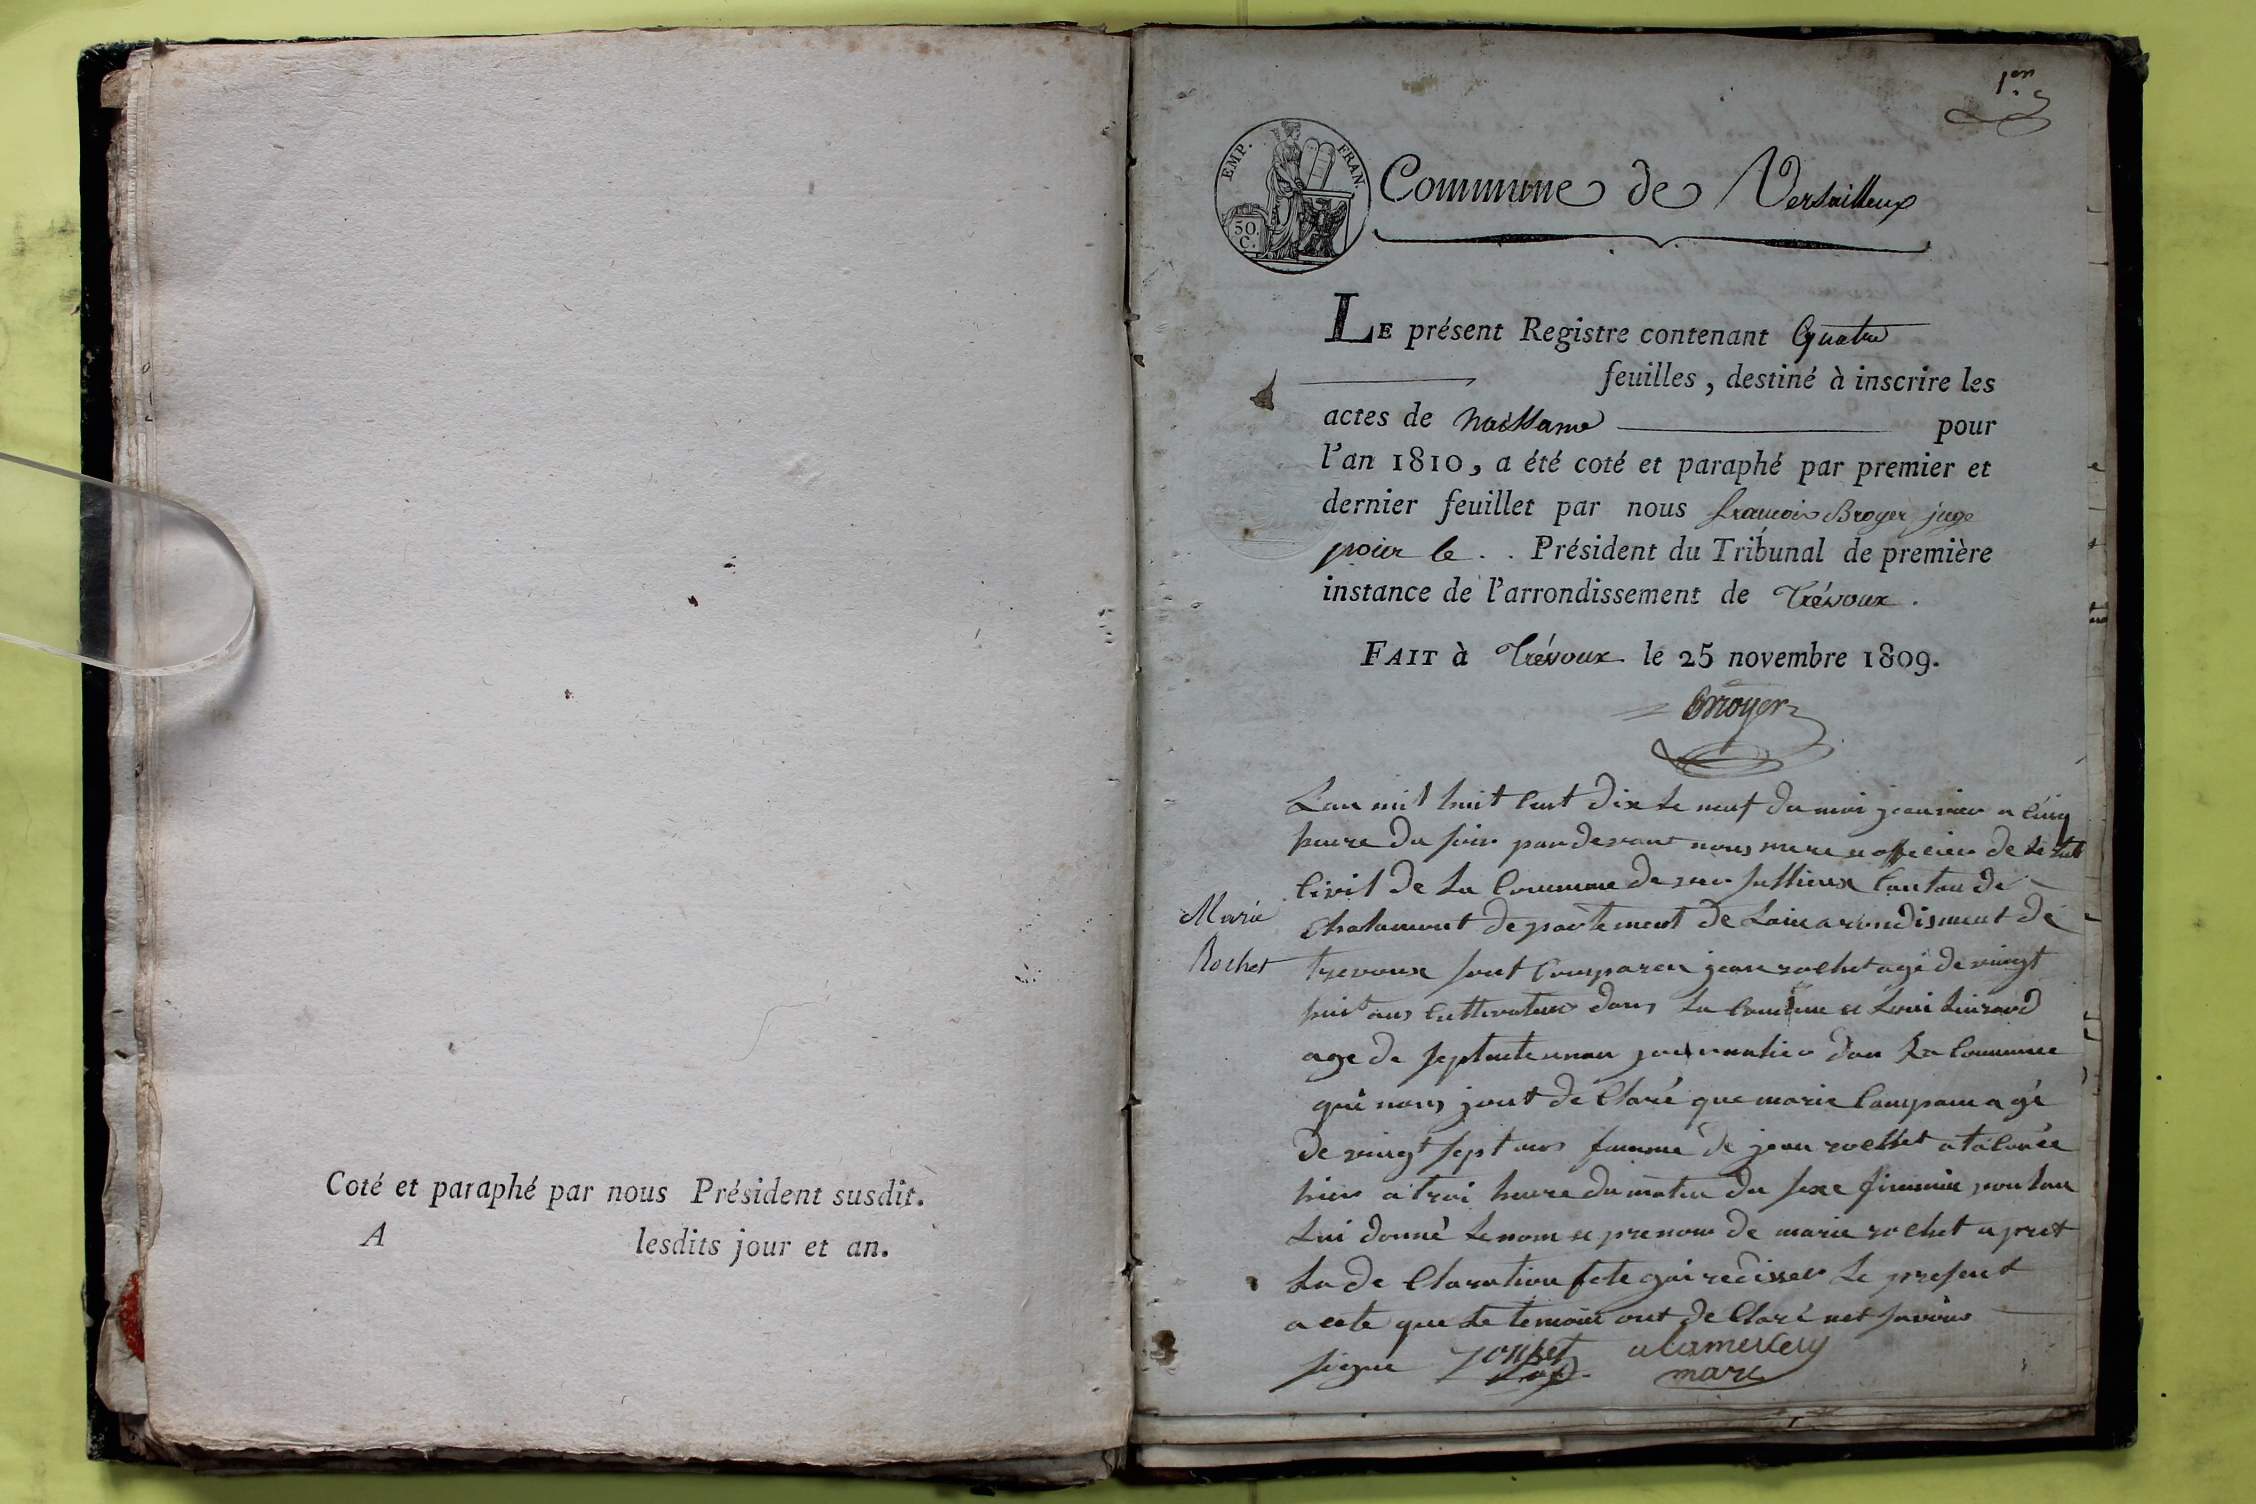 Coté et paraphé par nous Président susdit.
A lesdits jour et an.
1.er
EMP. FRAN.
50.
C.
Commune de Versailleux
LE présent Registre contenant Quatre
feuilles, destiné à inscrire les
actes de Naissance pour
l'an 1810, a été coté et paraphé par premier et
dernier feuillet par nous francois Broyer juge
pour le . . Président du Tribunal de première
instance de l'arrondissement de Trévoux.
FAIT à Trévoux le 25 novembre 1809.
Broyer
Marie
Rochet
Lan mil huit Cent dix le neuf du moi jeanvier a Cinq
heure du soir pardevant nous mere et officier de
Civil de La Commune de Canton de
Chalamont departement de Lain arondisment de
trevoux sont Compareu jean rochet agé de vingt
huit ans Cultivateur dans La Comune et Loui
age de septante un an dan La Commune
qui nous de Claré que marie Campam agé
de vingt sept ans famme de jean rochet
hier a troi heure du matin du sexe feminin
Lui donné Le nom et prenom de marie rochet apret
La de Claration fete jai redisser Le present
acete que Le temoin ont de Claré net savoir
signe
alamercery
marc